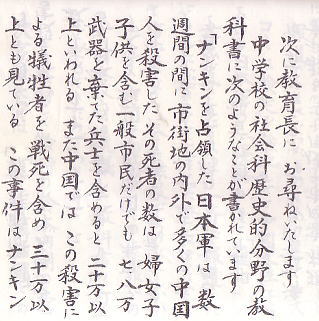 次に教育長に お尋ねいたします
中学校の社会科歴史的分野の教
科書に次のようなことが書かれています
「ナンキンを占領した 日本軍は 数
週間の間に 市街地の内外で多くの中国
人を殺害した その死者の数は 婦女子
子供を含む一般市民だけでも 七、八万
武器を棄てた兵士を含めると 二十万以
上といわれる また中国では この殺害に
よる犠牲者を 戦死を含め 三十万以
上とも見ている この事件は ナンキン